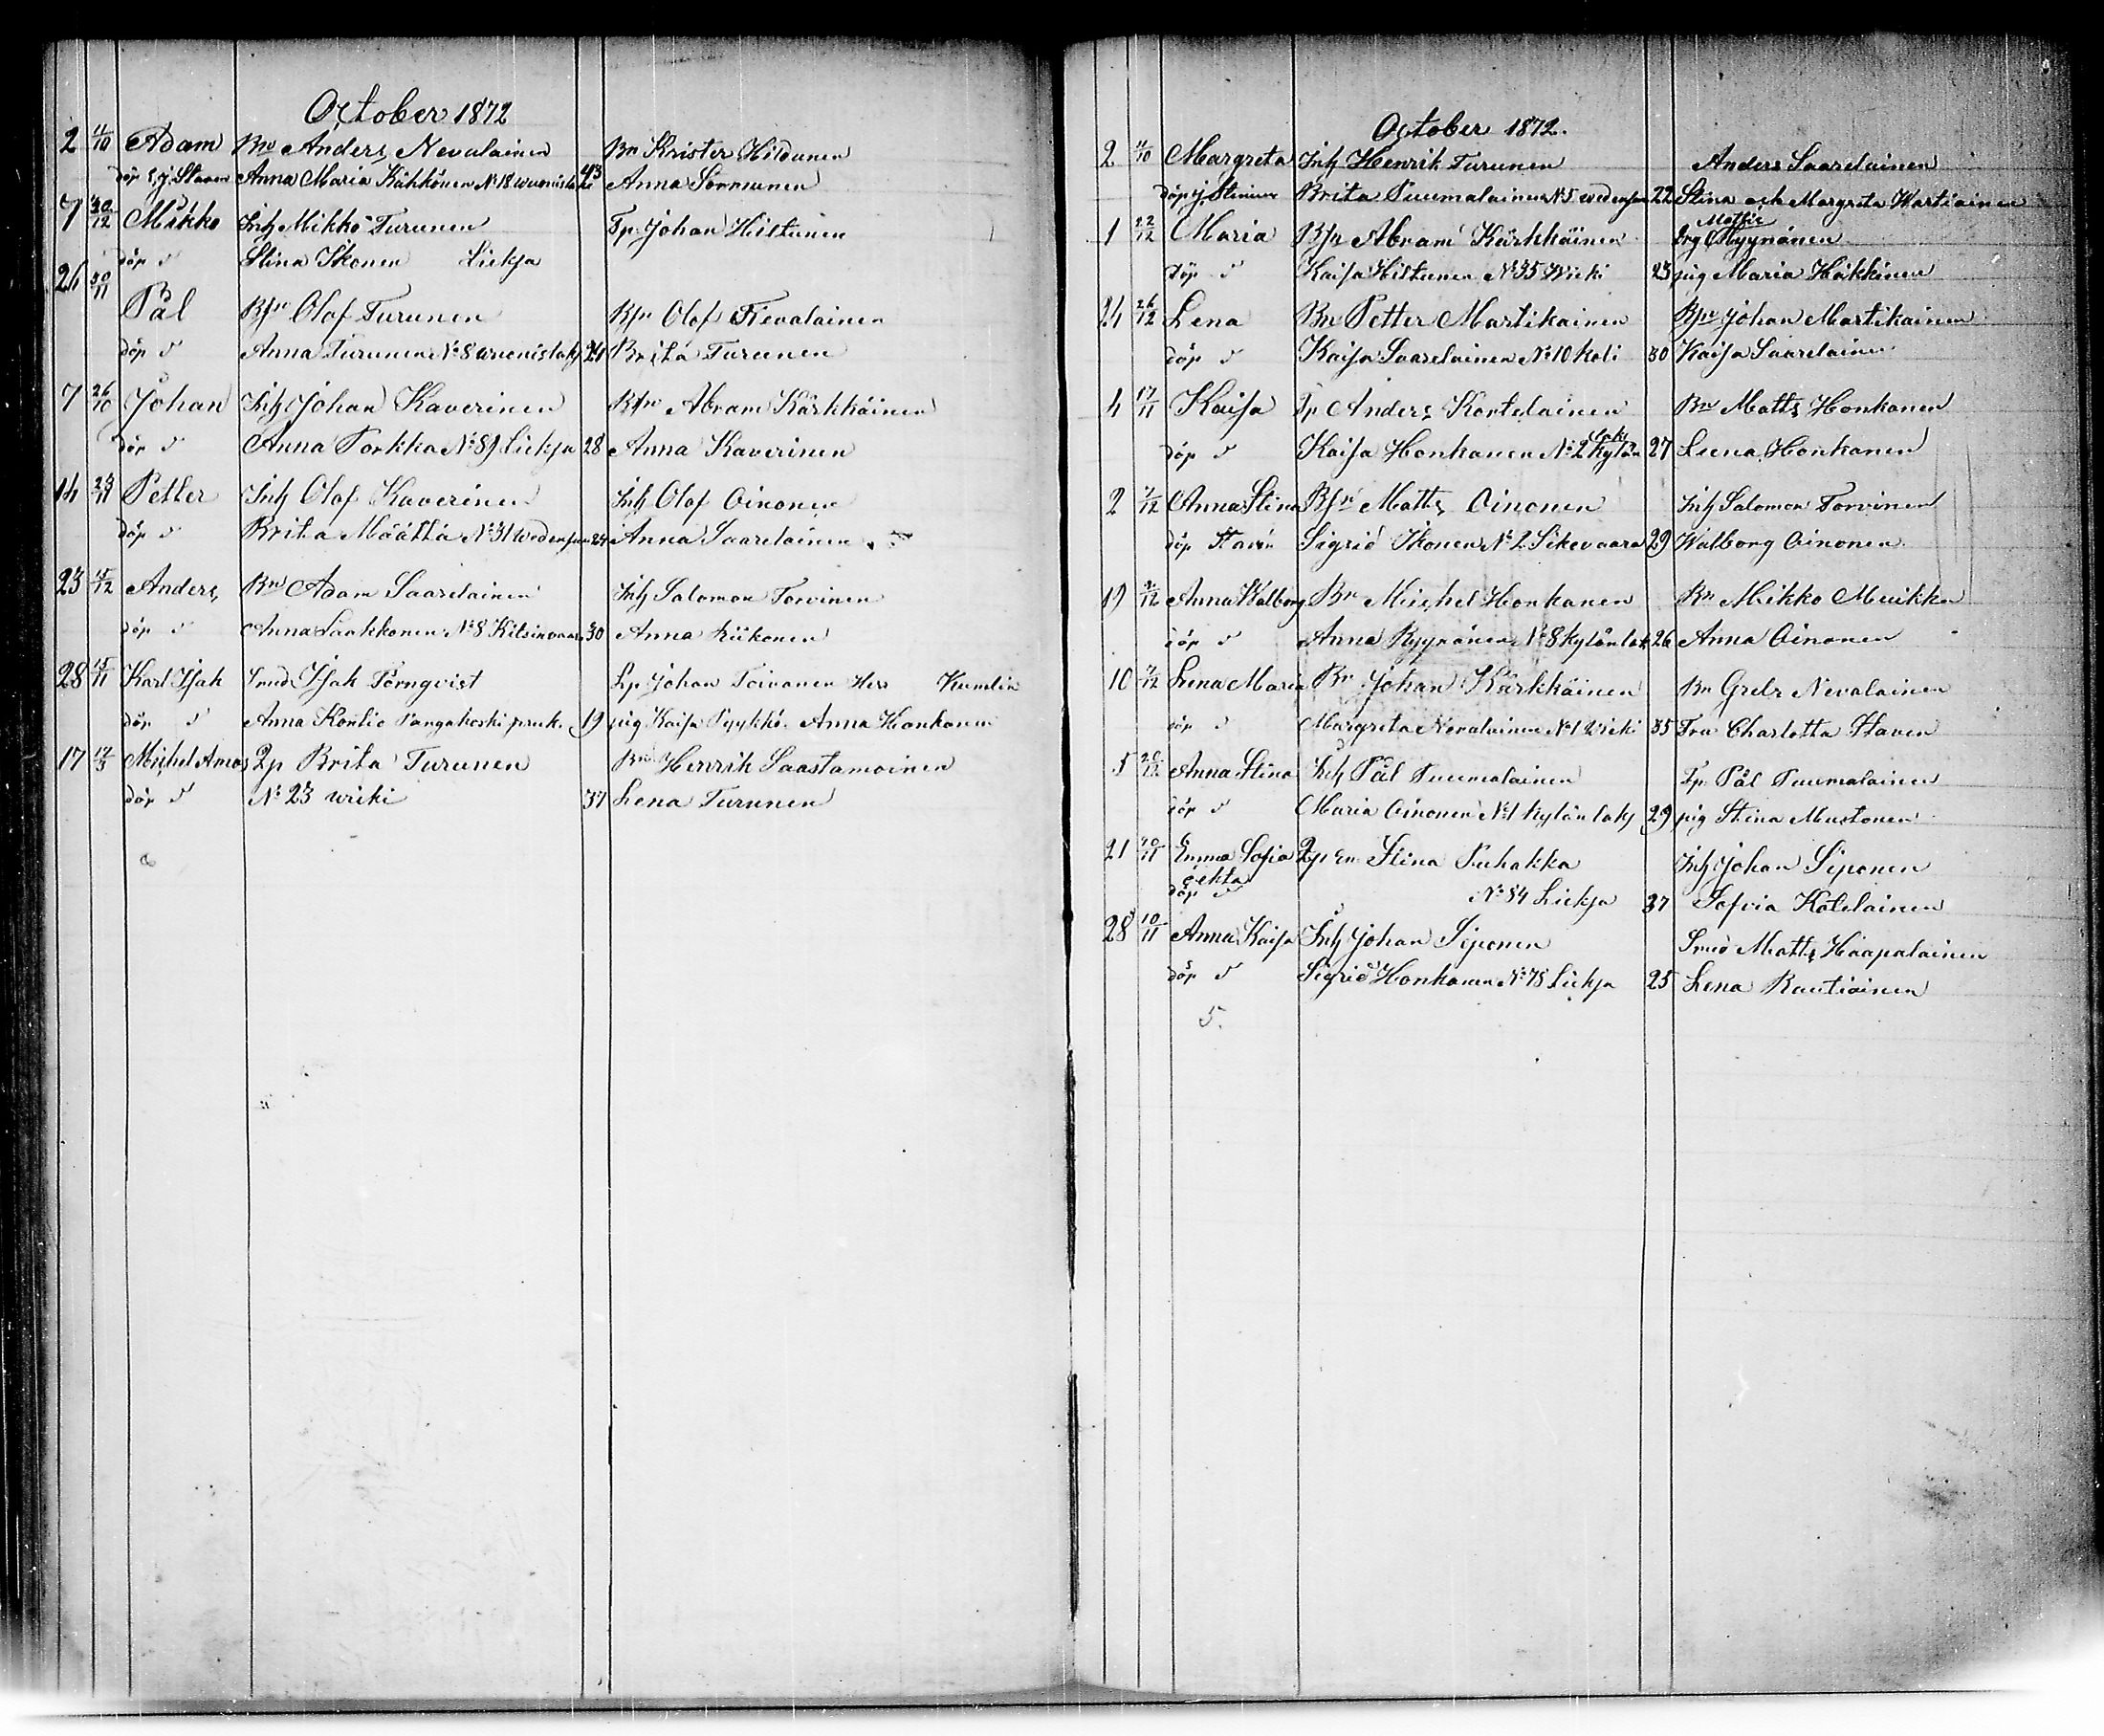 October 1872
2 4/10 Adam Bn Anders Nevalainen Bn Krister Hildunen
döp s. j. Staven Anna Maria Kähkönen No 18 wuonislaks 43 Anna Sormunen
7 30/12 Mikko Inh Mikko Turunen Tp. Johan Hiltunen
döp s Stina Ikonen Lieksa
26 30/11
Pål Bsn Olof Turunen Bsn Olof Nevalainen
döp s Anna Turunen No 8 wuonislaks 21 Brita Turunen
7 26/10 Johan Inh Johan Kaverinen Bsn Abram Kärkkäinen
döp s Anna Porkka No 89 Lieksa 28 Anna Kaverinen
14 24/11 Petter Inh Olof Kaverinen Inh Olof Oinonen
döp s Brita Määttä No 31 wedensuu 24 Anna Saarelainen
23 15/12 Anders Bn Adam Saarelainen Inh Salomon Torvinen
döp s Anna Laakkonen No 8 Kitsinvaara 30 Anna Kiikonen
28 15/11 Karl Isak Smed Isak Törnqvist Lp Johan Toivanen Her Kumlin
döp s Anna Kontio Pangakoski pruk. 19 pig Kaisa Pyykkö. Anna Honkanen
17 17/3 Michel Amos Qp Brita Turunen Bn Henrik Saastamoinen
döp s No 23 wieki 37 Lena Turunen
October 1872.
2 4/10 Margreta Inh Henrik Turunen Anders Saarelainen
döp j. Stenius Brita Puumalainen No 5 wedensuu 22 Stina och Margreta Wartiainen
1 22/12 Maria Bsn Abram Kärkkäinen Drg Mattie Ryynänen
döp s Kaisa Hiltunen No 35 Wieki 23 pig Maria Häkkinen
24 26/12 Lena Bn Petter Martikainen Bsn Johan Martikainen
döp s Kaisa Saarelainen No 10 Koli 30 Kaisa Saarelainen
4 17/11 Kaisa Tp Anders Kortelainen Bn Matts Honkanen
laks
döp s Kaisa Honkanen No 2 Kylän 27 Leena Honkanen
2 7/12 Anna Stina Bsn Matts Oinonen Inh Salomon Torvinen
döp Staven Sigrid Ikonen No 2 Sikevaara 29 Walborg Oinonen
19 2/12 Anna Walborg Bn Michel Honkanen Bn Mikko Muikka
döp s Anna Ryynänen No 8 Kylänlak 26 Anna Oinonen
10 7/12 Lena Maria Bn Johan Kärkkäinen Bn Grels Nevalainen
döp s Margreta Nevalainen No 1 Wieki 35 Fru Charlotta Staven
5 26/12 Anna Stina Inh Pål Puumalainen Tp Pål Puumalainen
döp s Maria Oinonen No 1 Kylänlaks 29 pig Stina Mustonen
21 10/11 Emma Sofia Qp En Stina Puhakka Inh Johan Siponen
oekta
döp s No 84 Lieksa 37 Sofvia Kotelainen
28 10/11 Anna Kaisa Inh Johan Siponen Smed Matts Haapalainen
döp s Sigrid Honkanen No 78 Lieksa 25 Lena Rautiainen
5.